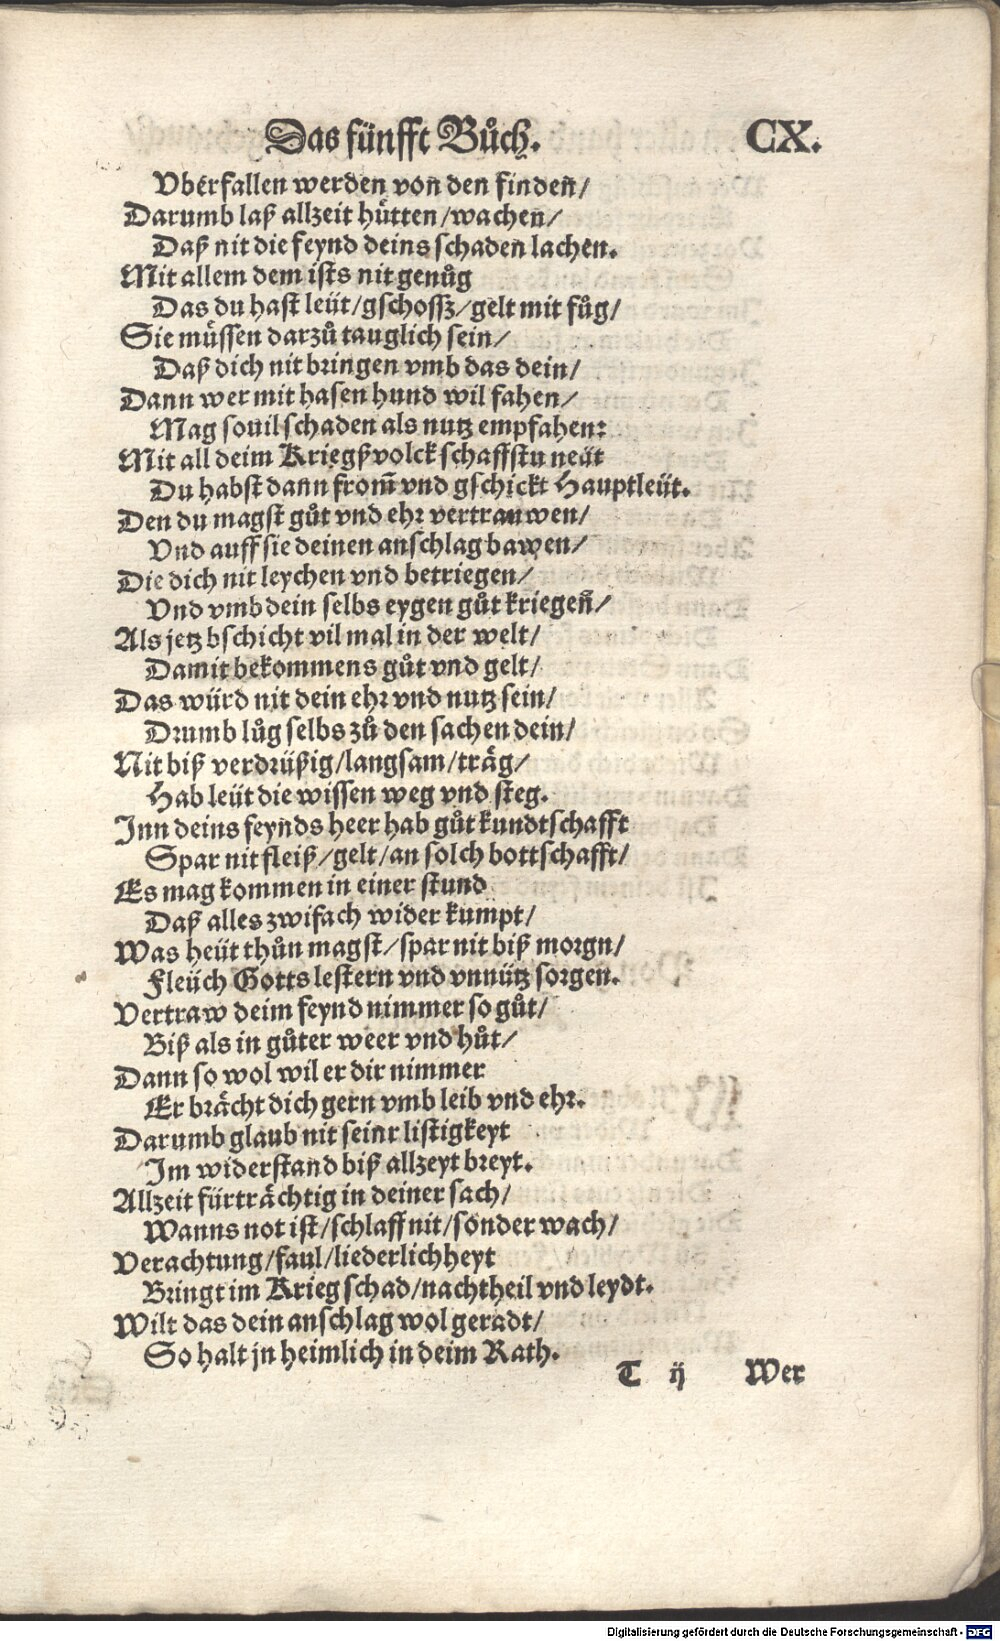 Das fünfft Bůch. CX.
Vberfallen werden von den findeñ/
Darumb laß allzeit hütten/wacheñ/
Daß nit die feynd deins schaden lachen.
Mit allem dem ists nit genůg
Das du hast leüt/gschossz/gelt mit fůg/
Sie müssen darzů tauglich sein/
Daß dich nit bringen vmb das dein/
Dann wer mit hasen hund wil fahen/
Mag souil schaden als nutz empfahen:
Mit all deim Kriegßvolck schaffstu neüt
Du habst dann from̄ vnd gschickt Hauptleüt.
Den du magst gůt vnd ehr vertrauwen/
Vnd auff sie deinen anschlag bawen/
Die dich nit leychen vnd betriegen/
Vnd vmb dein selbs eygen gůt kriegeñ/
Als jetz bschicht vil mal in der welt/
Damit bekommens gůt vnd gelt/
Das würd nit dein ehr vnd nutz sein/
Drumb lůg selbs zů den sachen dein/
Nit biß verdrüßig/langsam/träg/
Hab leüt die wissen weg vnd steg.
Inn deins feynds heer hab gůt kundtschafft
Spar nit fleiß/gelt/an solch bottschafft/
Es mag kommen in einer stund
Daß alles zwifach wider kumpt/
Was heüt thůn magst/spar nit biß morgn/
Fleüch Gotts lestern vnd vnnütz sorgen.
Vertraw deim feynd nimmer so gůt/
Biß als in gůter weer vnd hůt/
Dann so wol wil er dir nimmer
Er brächt dich gern vmb leib vnd ehr.
Darumb glaub nit seinr listigkeyt
Im widerstand biß allzeyt breyt.
Allzeit fürträchtig in deiner sach/
Wanns not ist/schlaff nit/sonder wach/
Verachtung/faul/liederlichheyt
Bringt im Krieg schad/nachtheil vnd leydt.
Wilt das dein anschlag wol geradt/
So halt jn heimlich in deim Rath.
T ij Wer
Digitalisierung gefördert durch die Deutsche Forschungsgemeinschaft - DFG